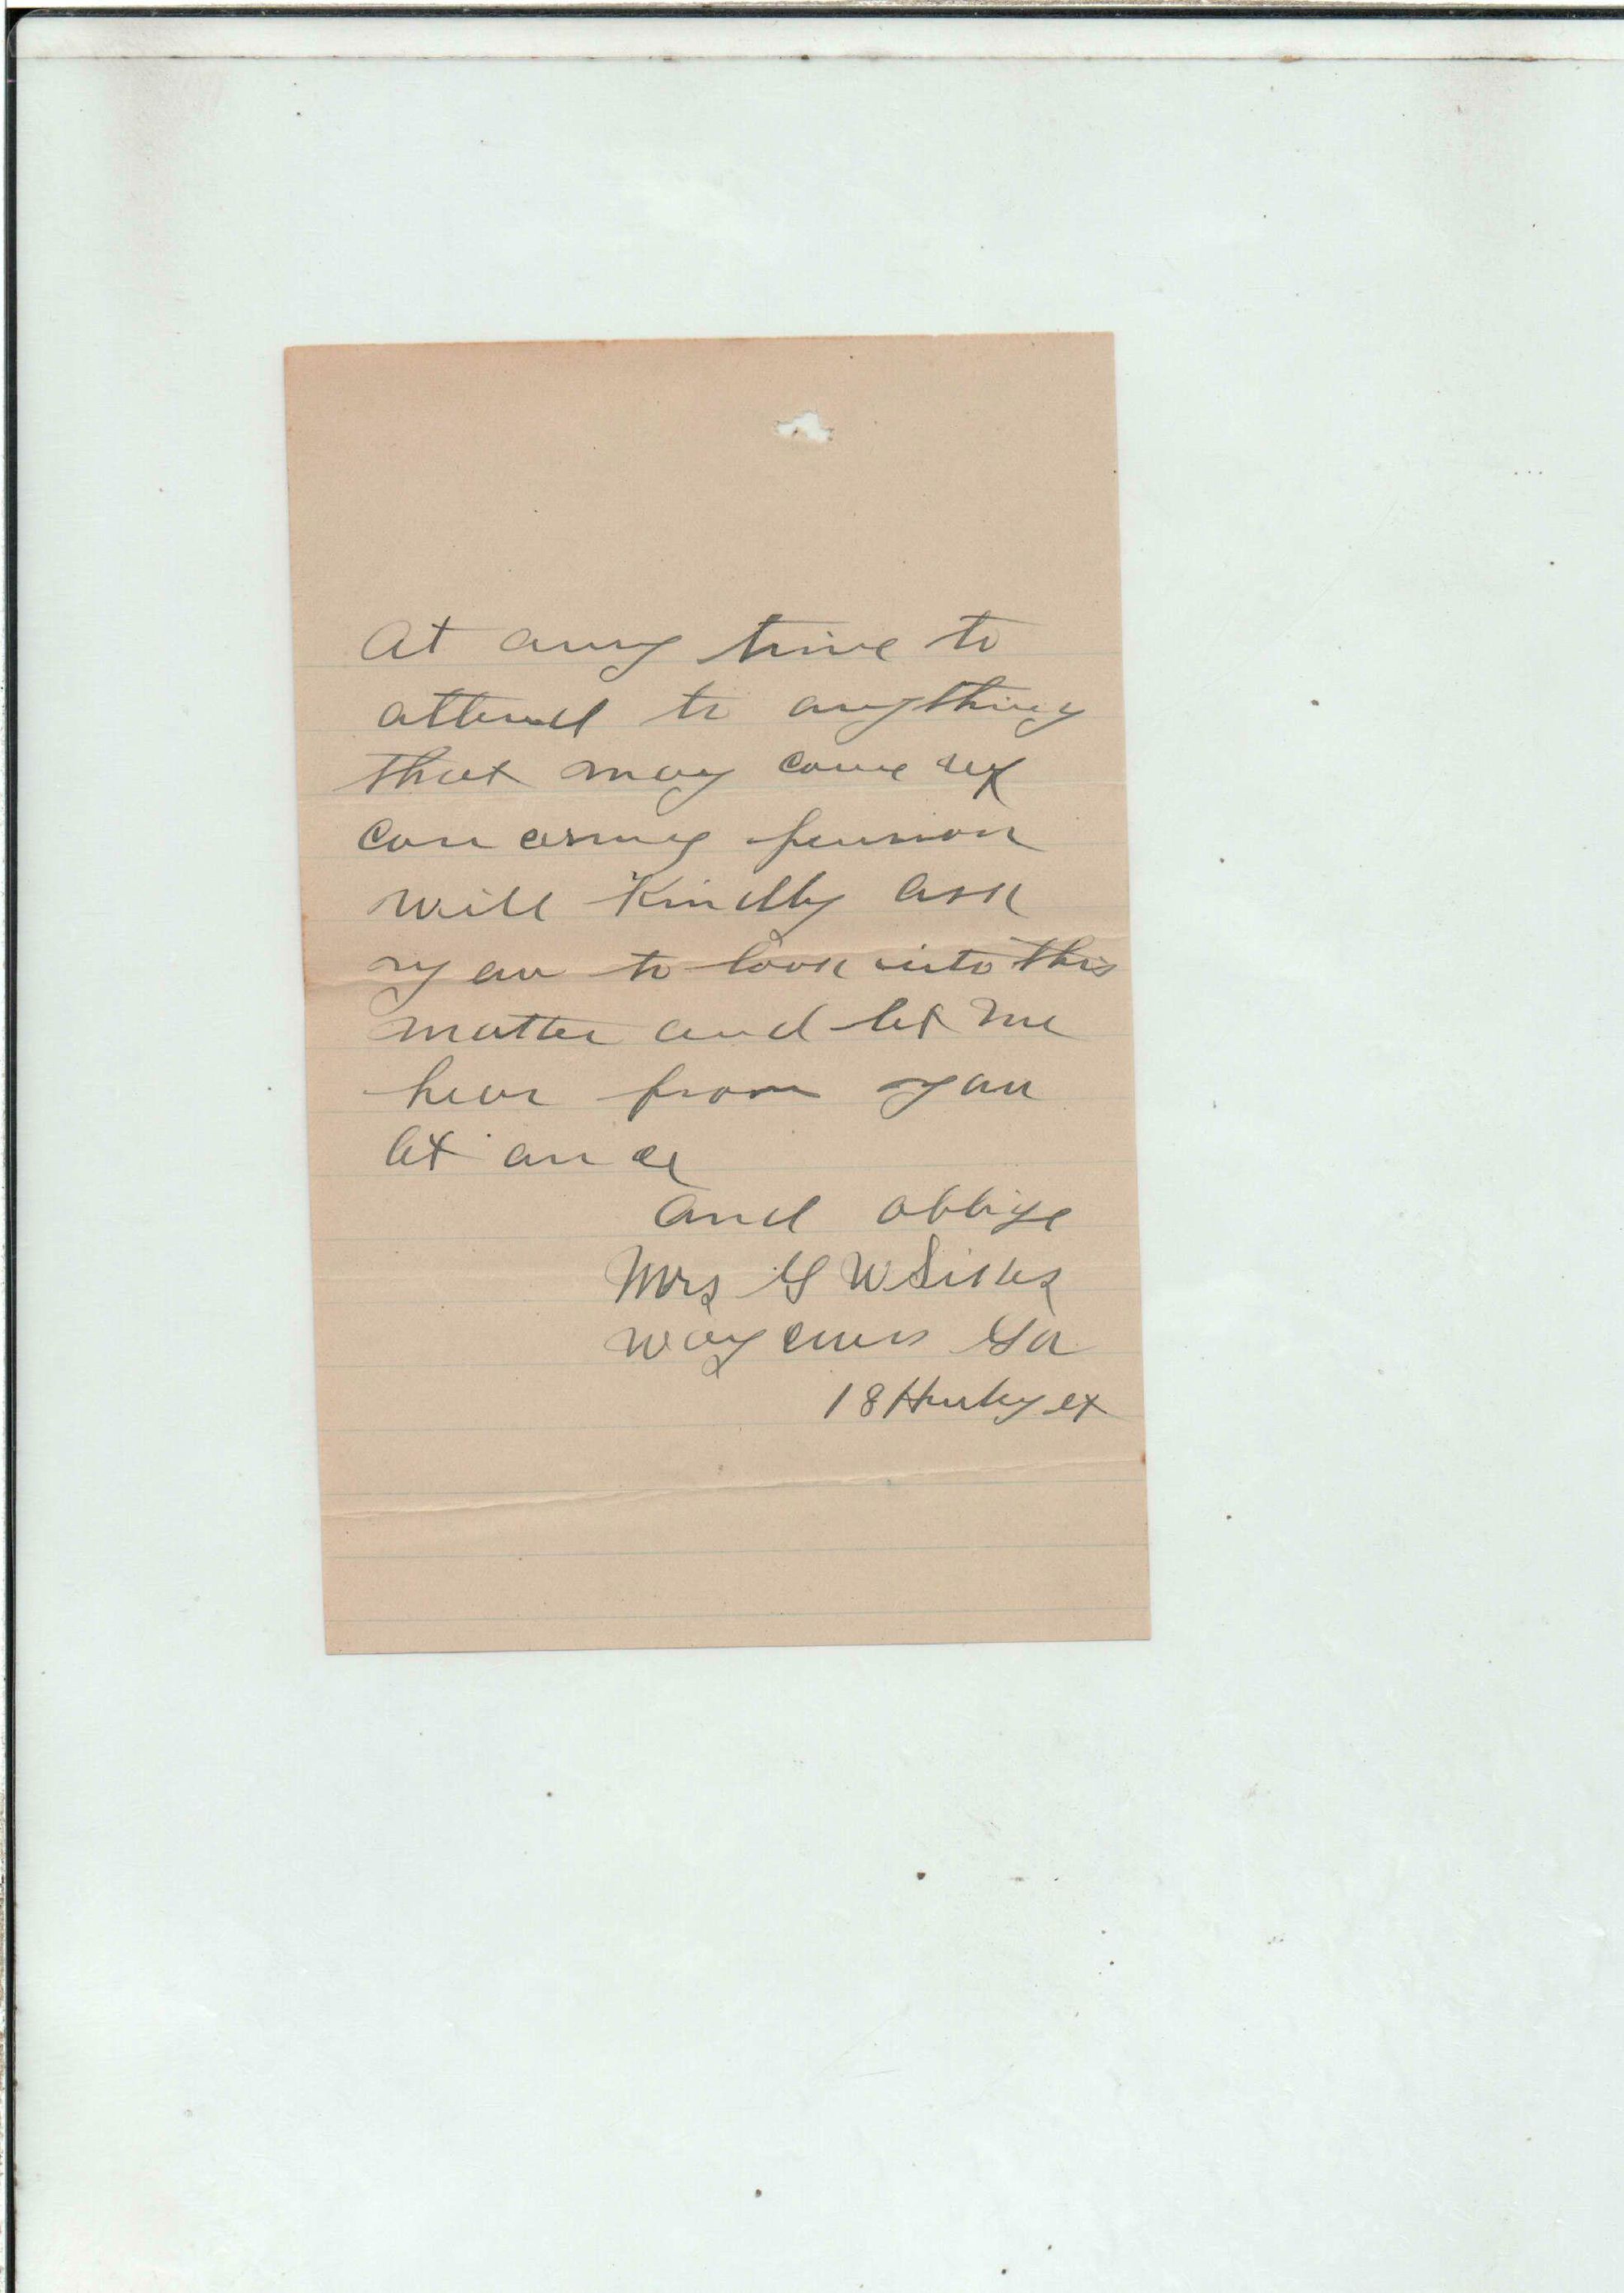 At any time to
attend to anything
that may come up
concerning pension
will Kindly ask
you to look into this
matter and let me
hear from you
at once
and oblige
Mrs G W
Ga
18